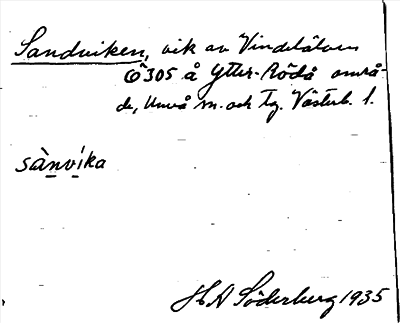 Sandviken, vik av Vindelälven
Ö 305 å Ytter-Rödå områ-
de, Umeå sn. och tg. Västerb. l.
sànvíka
H A Söderberg 1935